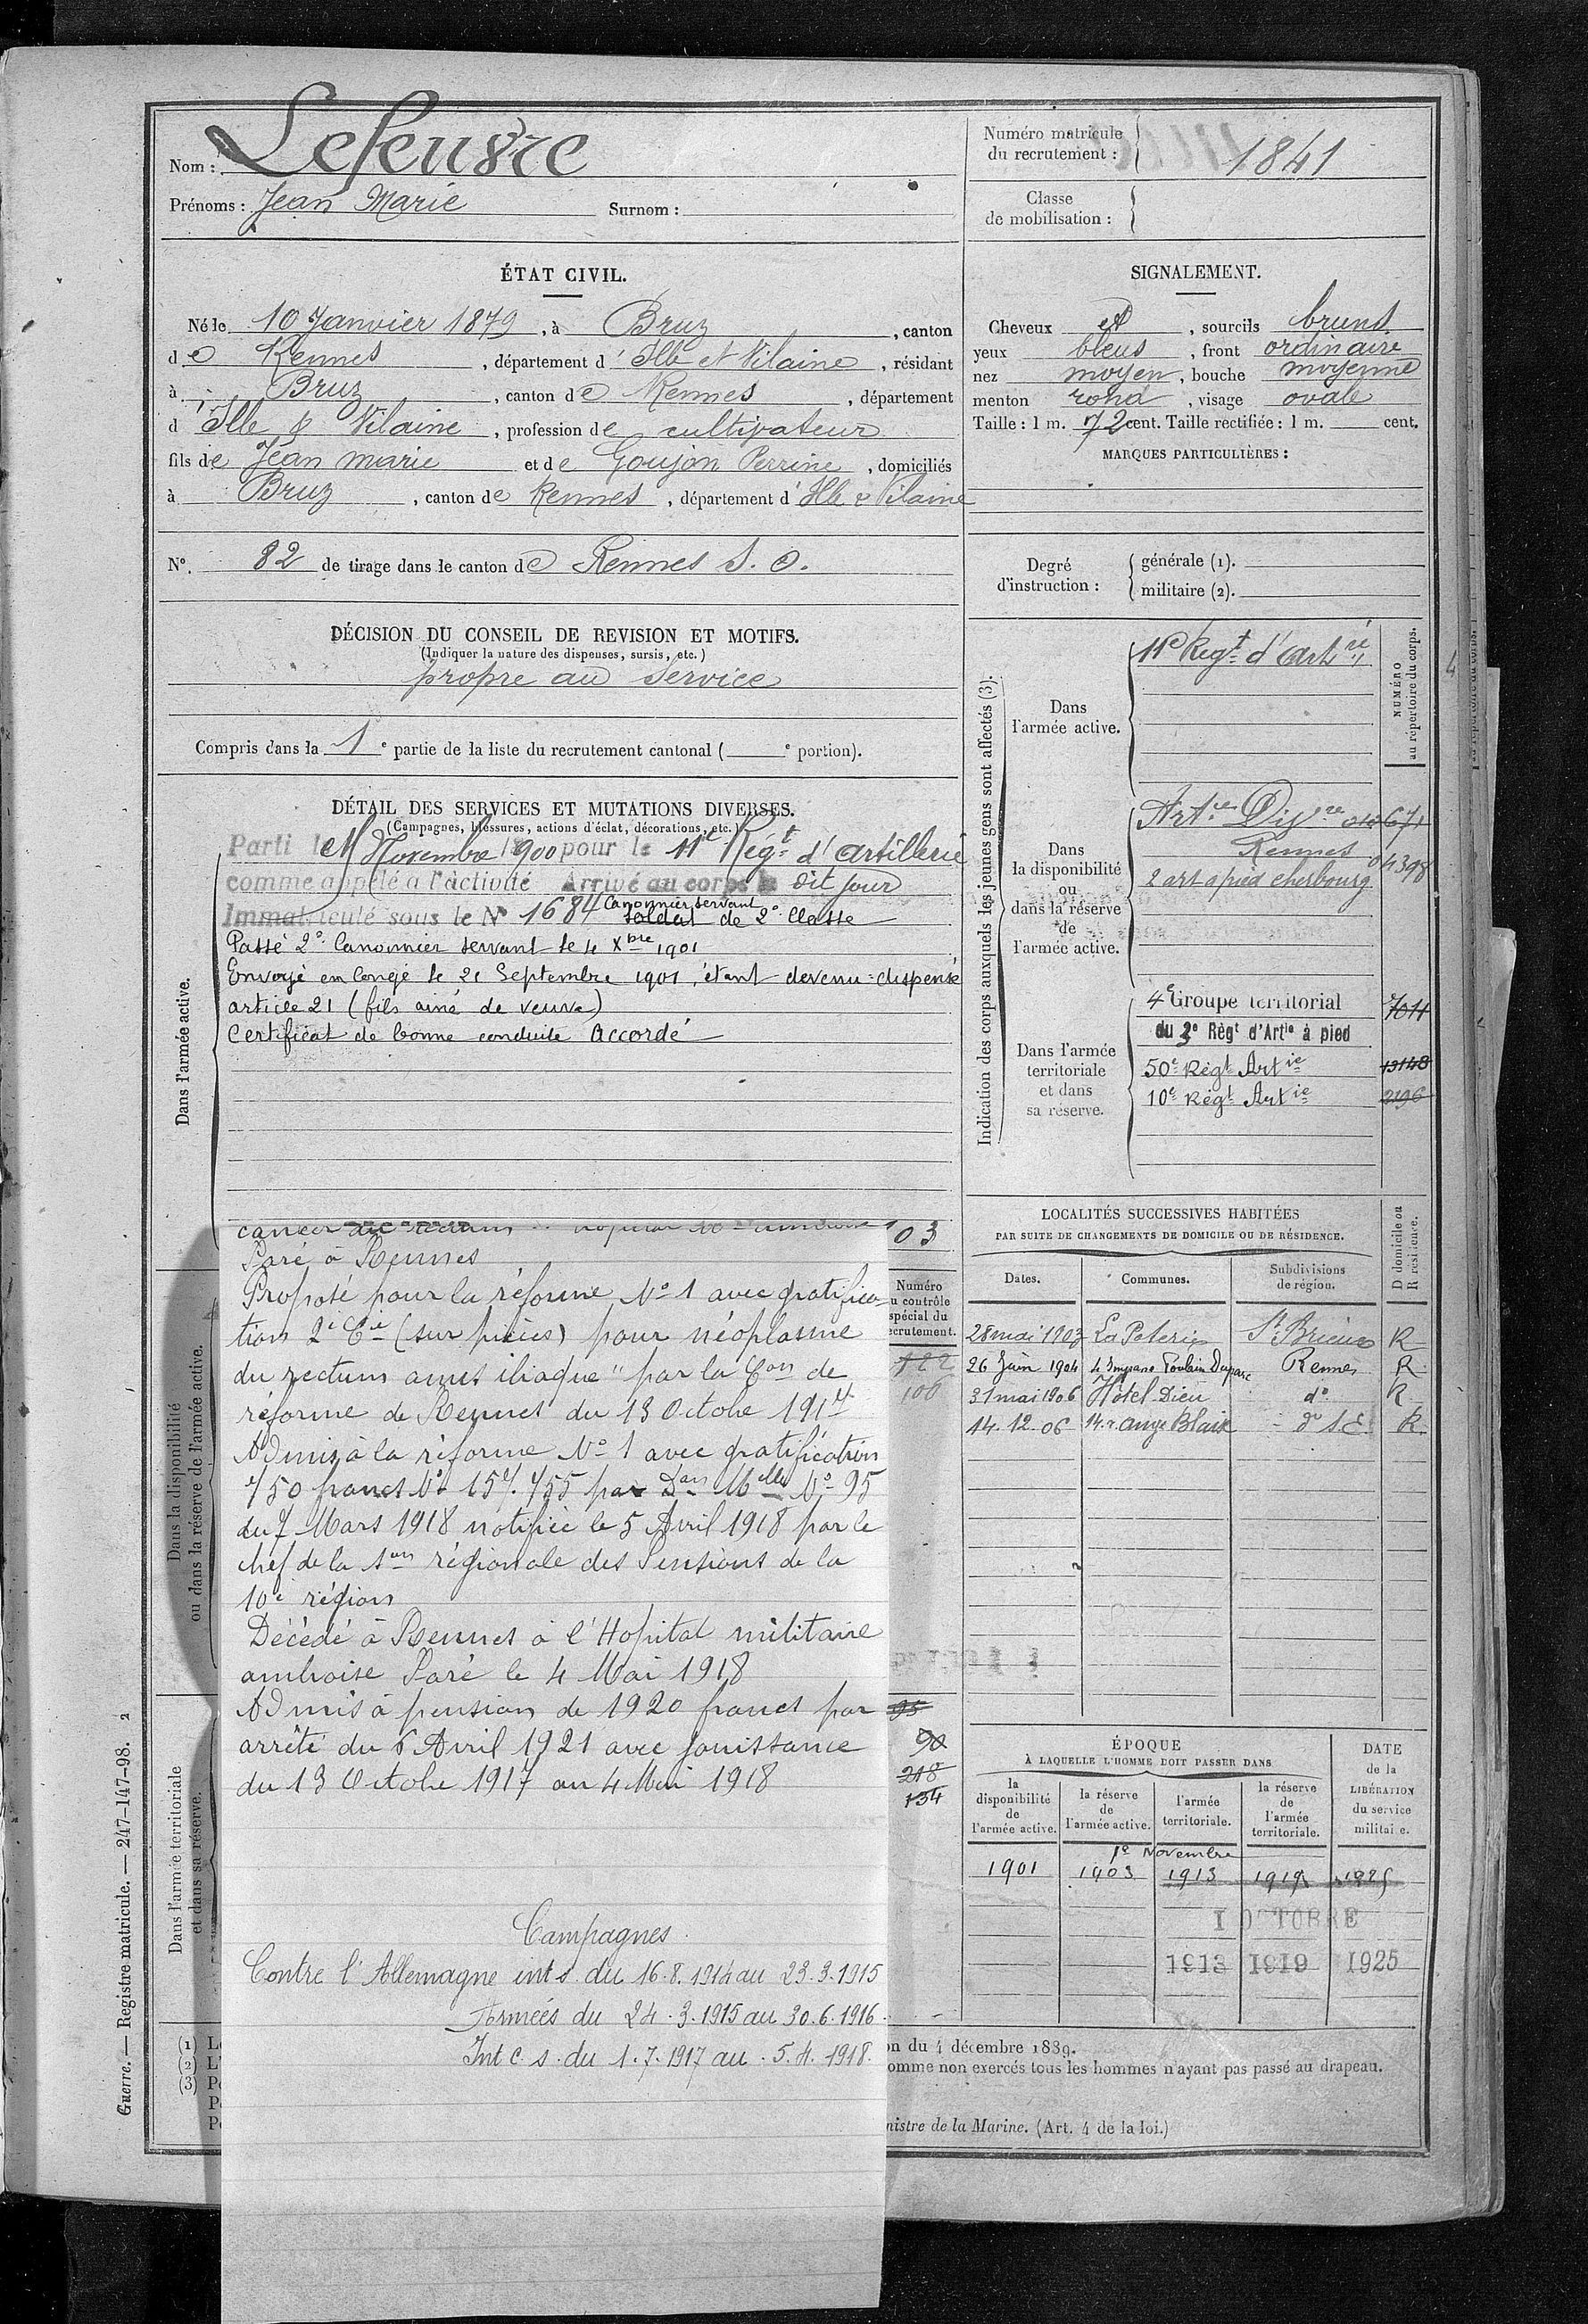 Nom : Lefeuvre
Prénoms : Jean Marie Surnom :
Numéro matricule du recrutement : 1841
Classe de mobilisation :
ÉTAT CIVIL.
Né le 10 Janvier 1879, à Bruz, canton
de Rennes, département d'Ille et Vilaine, résidant
à Bruz, canton de Rennes, département
d'Ille & Vilaine, profession de cultivateur
fils de Jean marie et de Goujon Perrine, domiciliés
à Bruz, canton de Rennes, département d'Ille & Vilaine
N°. 82 de tirage dans le canton de Rennes S. O.
DÉCISION DU CONSEIL DE REVISION ET MOTIFS.
(Indiquer la nature des dispenses, sursis, etc.)
propre au Service
Compris dans la 1e partie de la liste du recrutement cantonal ( e portion).
SIGNALEMENT.
Cheveux et, sourcils bruns
yeux bleus, front ordinaire
nez moyen, bouche moyenne
menton rond, visage ovale
Taille : 1 m. 72 cent. Taille rectifiée : 1 m. cent.
MARQUES PARTICULIÈRES :
Degré d'instruction :
générale (1).
militaire (2).
DÉTAIL DES SERVICES ET MUTATIONS DIVERSES.
(Campagnes, blessures, actions d'éclat, décorations, etc.)
Dans l'armée active.
Parti le Novembre 1900 pour le 11e Régt d'artillerie
comme appelé à l'activité Arrivé au corps le dit jour
Immatriculé sous le N° 1684 Canonnier servant soldat de 2e Classe
Passé 2e Canonnier servant le 4 Xbre 1901
Envoyé en Congé le 21 Septembre 1901, étant devenu dispensé
article 21 (fils ainé de veuve)
Certificat de bonne conduite Accordé
Indication des corps auxquels les jeunes gens sont affectés (3).
NUMÉRO au répertoire du corps.
Dans l'armée active.
11e Régt d'Artrie
Dans la disponibilité ou dans la réserve de l'armée active.
Rennes
2 art a pied cherbourg 04398
Dans l'armée territoriale et dans sa réserve.
4e Groupe territorial 7011
du 3e Règt d'Artie à pied
50e Régt Artie 13148
10e Régt Artie 2196
LOCALITÉS SUCCESSIVES HABITÉES
PAR SUITE DE CHANGEMENTS DE DOMICILE OU DE RÉSIDENCE.
Dates. Communes. Subdivisions de région. D domicile ou R résidence.
28 mai 1903 St Brieuc R
26 Juin 1904 Rennes R
31 mai 1906 Hôtel Dieu do R
14.12.06 14. r. Ange Blaise do S.E. R
Dans la disponibilité ou dans la réserve de l'armée active.
Dans l'armée territoriale et dans sa réserve.
cancer du rectum
Paré à Rennes
Proposé pour la réforme N° 1 avec gratifica-
tion 2e Cie (sur pièces) pour néoplasme
du rectum anus iliaque" par la Con de
réforme de Rennes du 13 Octobre 1917
Admis à la réforme N° 1 avec gratification
750 francs N° 157.755 par Don Mlle N° 95
du 7 Mars 1918 notifiée le 5 Avril 1918 par le
chef de la son régionale des Pensions de la
10e région
Décédé à Rennes à l'Hopital militaire
ambroise Paré le 4 Mai 1918
Admis à pension de 1920 francs par
arrêté du 6 Avril 1921 avec jouissance
du 13 Octobre 1917 au 4 Mai 1918
Campagnes
Contre l'Allemagne int s. du 16.8.1914 au 23.3.1915
Armées du 24.3.1915 au 30.6.1916
Int C.s. du 1.7.1917 au 5.4.1918.
103
Numéro
122
106
95
90
218
134
ÉPOQUE
À LAQUELLE L'HOMME DOIT PASSER DANS
la disponibilité de l'armée active.
la réserve de l'armée active.
l'armée territoriale.
la réserve de l'armée territoriale.
DATE de la LIBÉRATION du service militaire.
1er Novembre
1901 1903 1913
1 OCTOBRE
1913 1919 1925
(1) L
(2) L'
(3) P
on du 4 décembre 1889.
omme non exercés tous les hommes n'ayant pas passé au drapeau.
nistre de la Marine. (Art. 4 de la loi.)
Guerre. — Registre matricule. — 247-147-98. 2